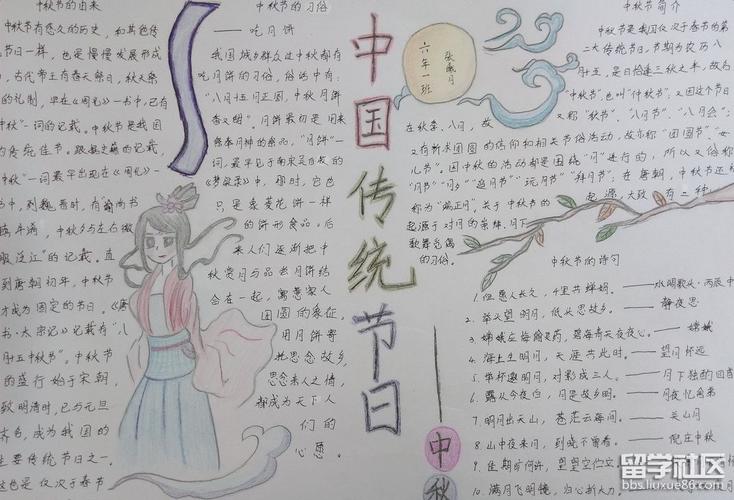 中秋节的由来
中秋节有悠久的历史，和其他传
节日一样，也是慢慢发展形成
古代帝王有春天祭日，秋天祭
的礼制，早在《周礼》一书中，已有
中秋"一词的记载。
中秋节是我国
的传统佳节。
中秋"一词最早出现在《周礼》一
书中，到魏晋时，有
中秋夕与左右微
泛江"的记载。直
到唐朝初年，中秋节
才成为固定的节日。《唐
书·太宗记》记载有"八
月十五中秋节"。中秋节
的盛行始于宋朝，
致明清时，已与元旦
齐名，成为我国的
主要传统节日之一。
这也是仅次于春节
中秋节的习俗
——吃月饼
我国城乡群众过中秋都有
吃月饼的习俗，俗话中有：
"八月十五月正圆，中秋月饼
香又甜"。月饼最初是用来
祭奉月神的祭品，"月饼"一
词，最早见于南宋吴自牧的
《梦粱录》中，那时，它也
只是象菱花饼一样
的饼形食品。后
来人们逐渐把中
秋赏月与品尝月饼结
合在一起，寓意家人
团圆的象征，
用月饼寄
托思念故乡，
思念亲人之情，
都成为天下人
们的
心愿。
中国传统节日
——中秋
六年一班
中秋节简介
中秋节是我国仅次于春节的第
二大传统节日，节期为农历八
月十五，是日恰逢三秋之半，故名
"中秋节"，也叫"仲秋节"，又因这个节日
在秋季、八月，故
又称"秋节"、"八月节"、"八月会"；
又有祈求团圆的信仰和相关节俗活动，故亦称"团圆节"、"女
儿节"。因中秋的活动都是围绕"月"进行的，所以又俗称
"月节""月夕""追月节""玩月节""拜月节"，在唐朝，中秋节还
称为"端正月"。关于中秋节的
起源，大致有三种
起源于对月的崇拜、月下
歌舞觅偶
的习俗。
中秋节的诗句
1. 但愿人长久，千里共婵娟。——水调歌头·丙辰中
2. 举头望明月，低头思故乡。——静夜思
3. 嫦娥应悔偷灵药，碧海青天夜夜心。——嫦娥
4. 海上生明月，天涯共此时。——望月怀远
5. 举杯邀明月，对影成三人。——月下独酌四首
6. 露从今夜白，月是故乡明。——月夜忆舍弟
7. 明月出天山，苍茫云海间。——关山月
8. 山中夜来月，到晓不曾看。——倪庄中秋
9. 佳期旷何许，望望空伫立。
10. 满月飞明镜，归心折大刀。
留学社区
bbs.liuxue86.com